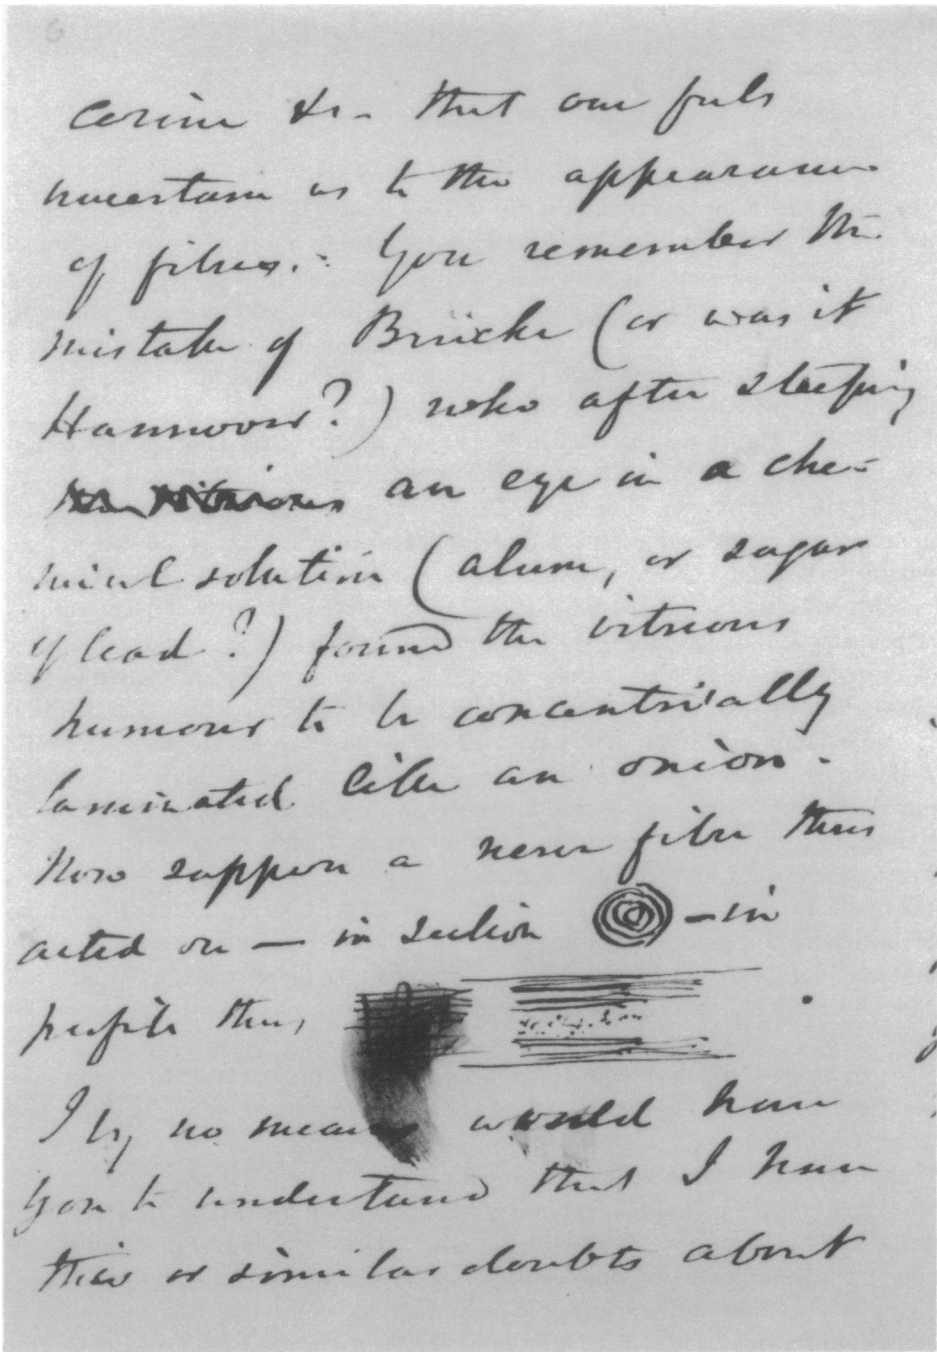 carmine &c - that one feels
uncertain as to the appearance
of fibres. - You remember the
mistake of Brücke (or was it
Hannover?) who after steeping
an eye in a che-
mical solution (alum, or sugar
of lead?) found the vitreous
humour to be concentrically
laminated like an onion.
Now suppose a nerve fibre thus
acted on — in section — in
profile thus,
I by no means would have
you to understand that I have
these or similar doubts about